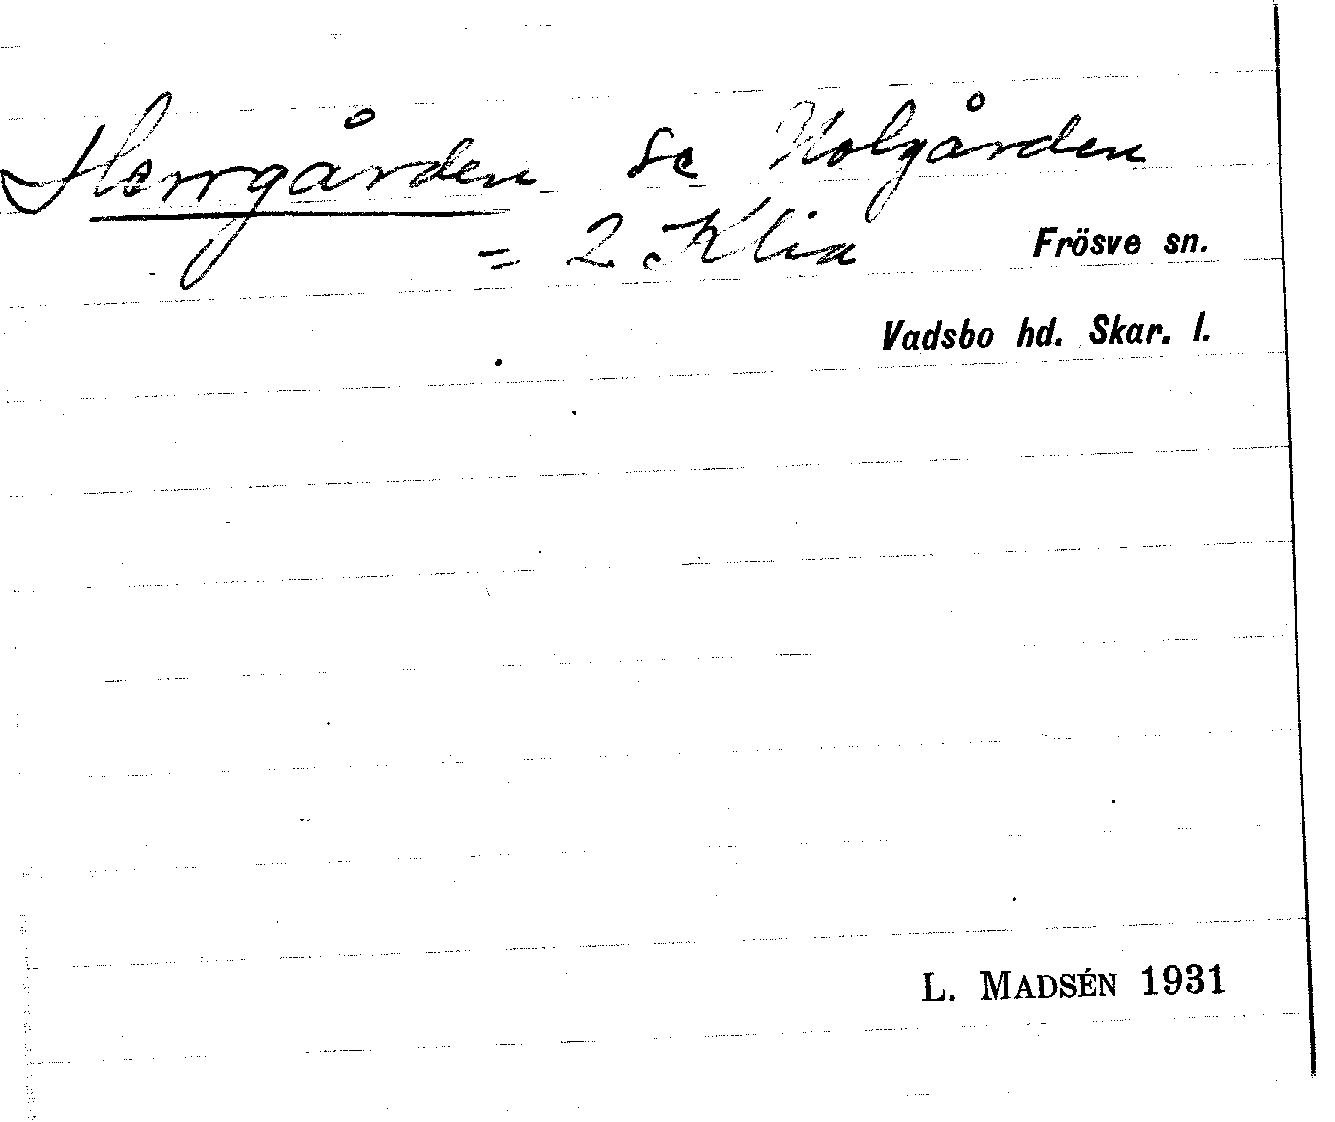 Herrgården se Holgården
= 2 Klia
Frösve sn.
Vadsbo hd. Skar. l.
L. MADSÉN 1931